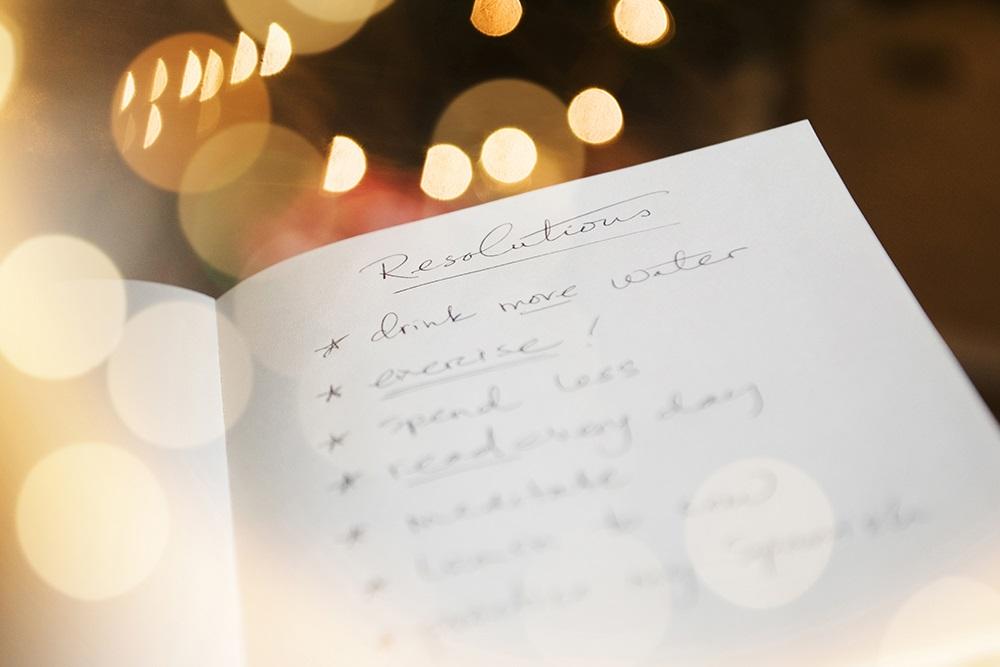 Resolutions
* drink more water
* exercise!
* spend less
* read every day
* meditate
* Learn to
* my Spanish